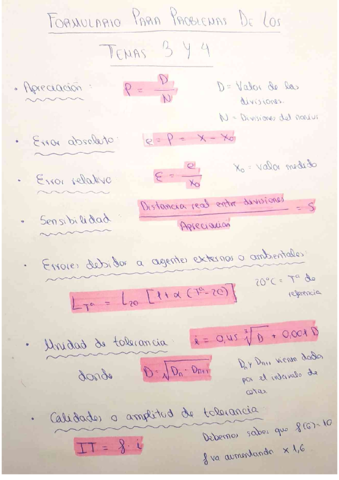 FORMULARIO PARA PROBLEMAS DE LOS
TEMAS 3 Y 4
• Apreciación: P = D / N
D = Valor de las divisiones
N = Divisiones del nonius
• Error absoluto: e = P = x - x₀
• Error relativo: ε = e / x₀
x₀ = valor medido
• Sensibilidad: Distancia real entre divisiones / Apreciación = S
• Errores debidos a agentes externos o ambientales:
L_Tº = L₂₀ [1 + α (Tº - 20)]
20ºC = Tº de referencia
• Unidad de tolerancia i = 0,45 ∛D + 0,001 D
donde D = √(D₁ · D₁₊₁)
vienen dados
por el intervalo de
cotas
• Calidades o amplitud de tolerancia
IT = f · i
Debemos saber que f(6) = 10
f va aumentando x 1,6